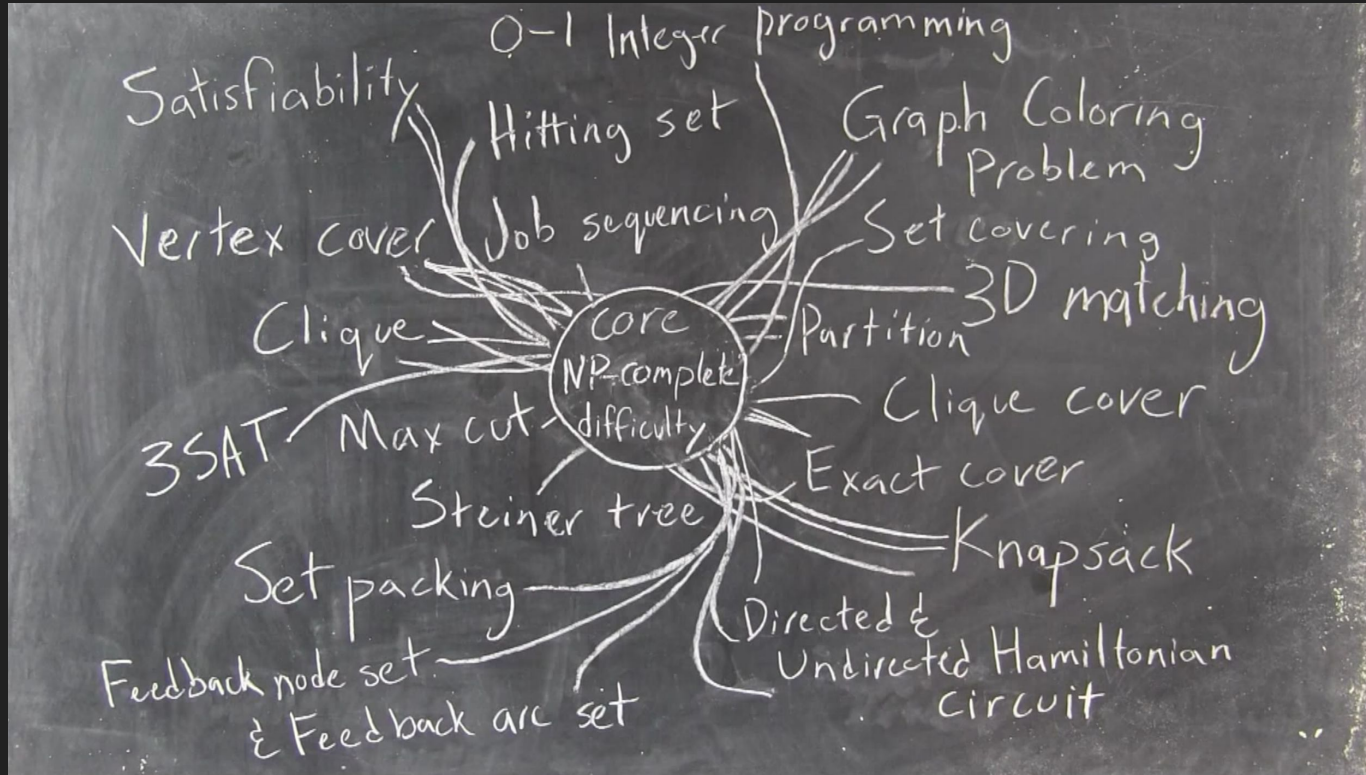 0-1 Integer programming
Satisfiability
Hitting set
Graph Coloring
Problem
Vertex cover
Job sequencing
Set covering
3D matching
Clique
core
NP-complete
difficulty
Partition
Clique cover
3SAT
Max cut
Exact cover
Steiner tree
Knapsack
Set packing
Directed &
Undirected Hamiltonian
circuit
Feedback node set
& Feedback arc set